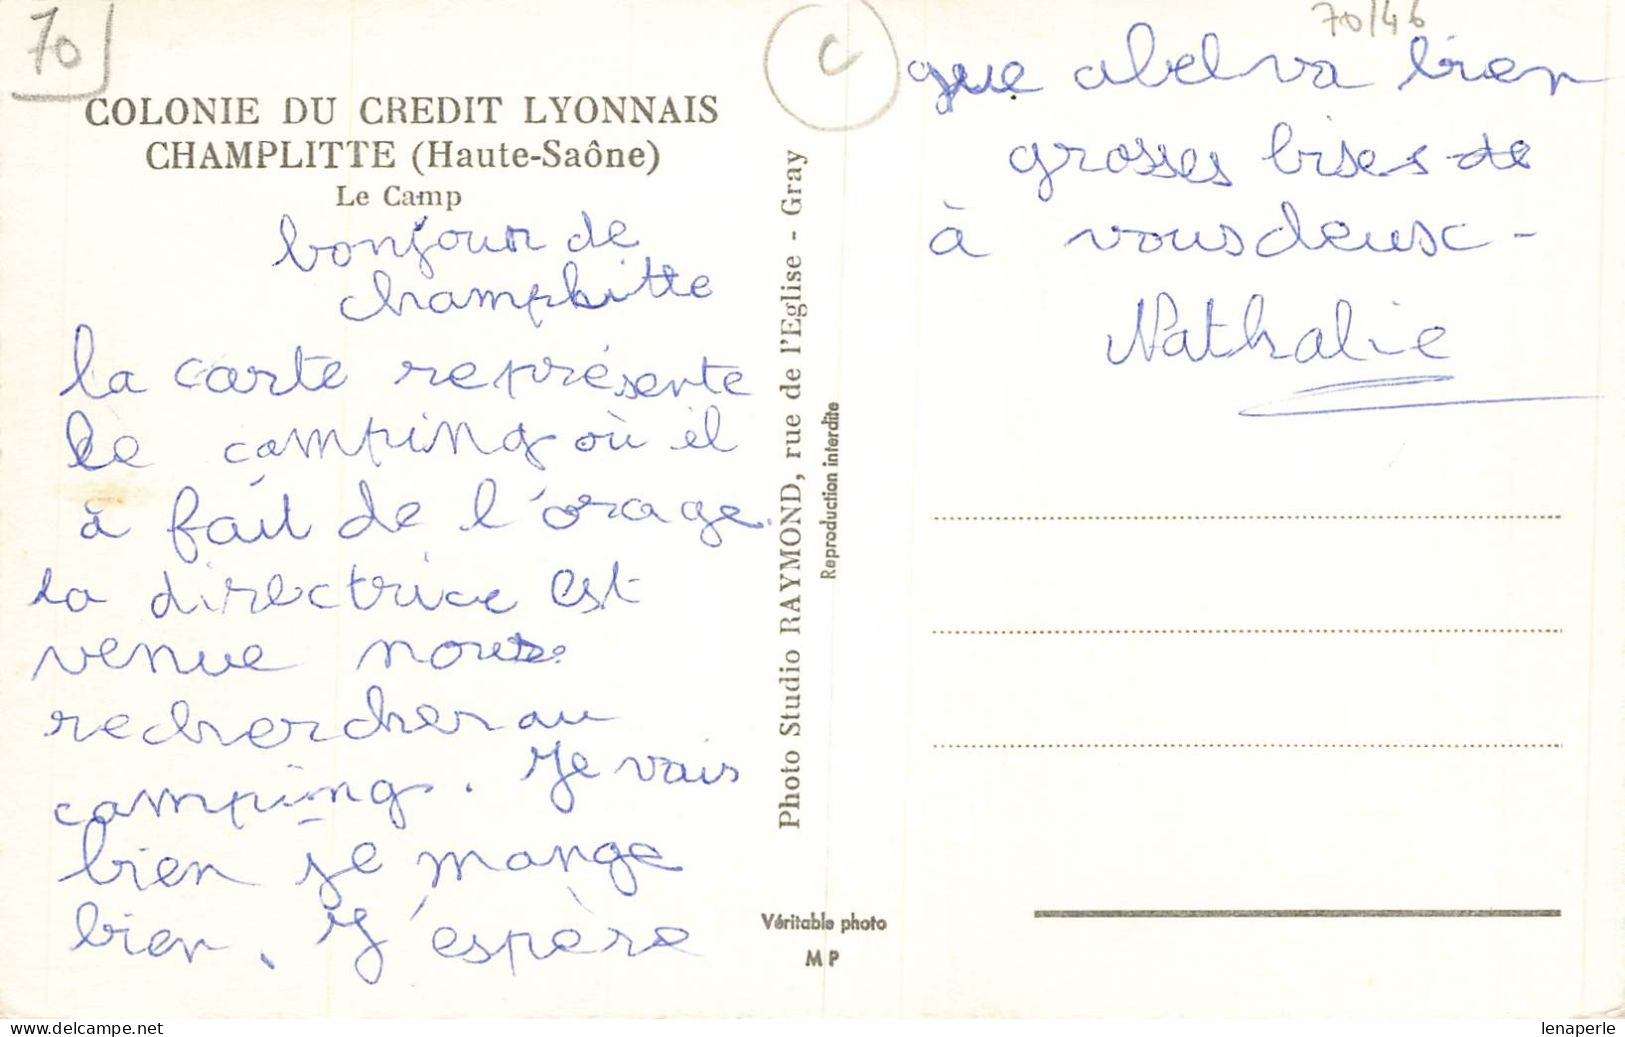 70
COLONIE DU CREDIT LYONNAIS
CHAMPLITTE (Haute-Saône)
Le Camp
bonjour de
champlitte
la carte représente
le camping où il
à fait de l'orage.
la directrice est
venue nous
rechercher au
camping. Je vais
bien je mange
bien. J'espère
Photo Studio RAYMOND, rue de l'Eglise - Gray
Reproduction interdite
Véritable photo
MP
C
70/46
que abel va bien
grosses bises de
à vous deux -
Nathalie
www.delcampe.net
lenaperle